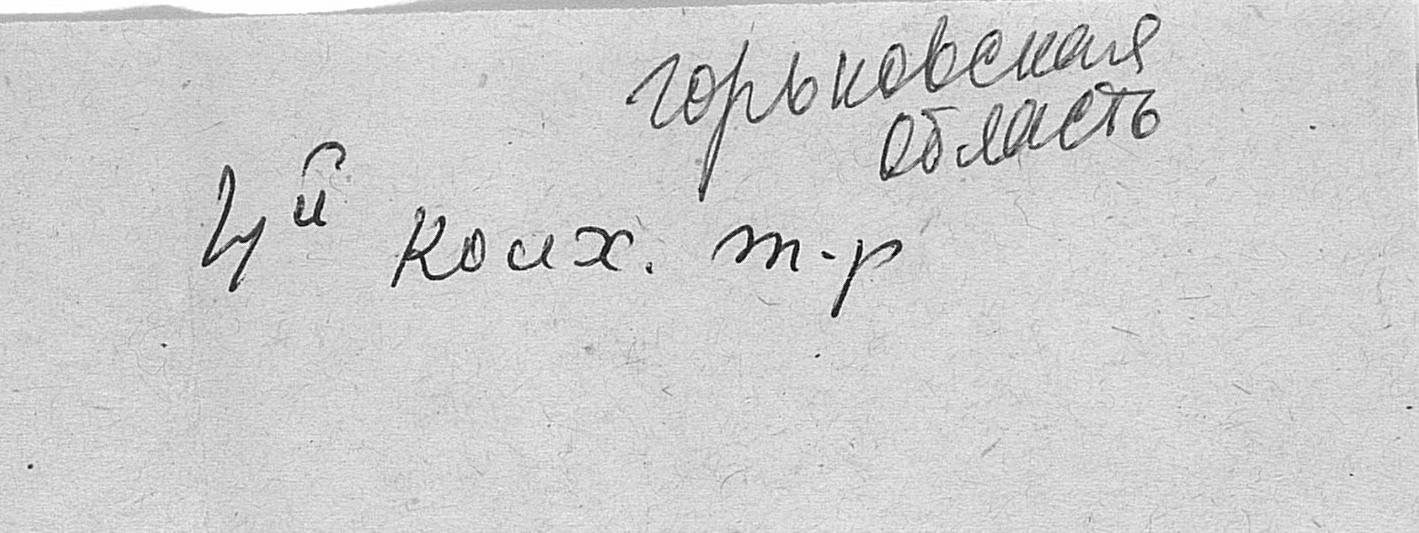 горьковская
область
4й колх. т-р